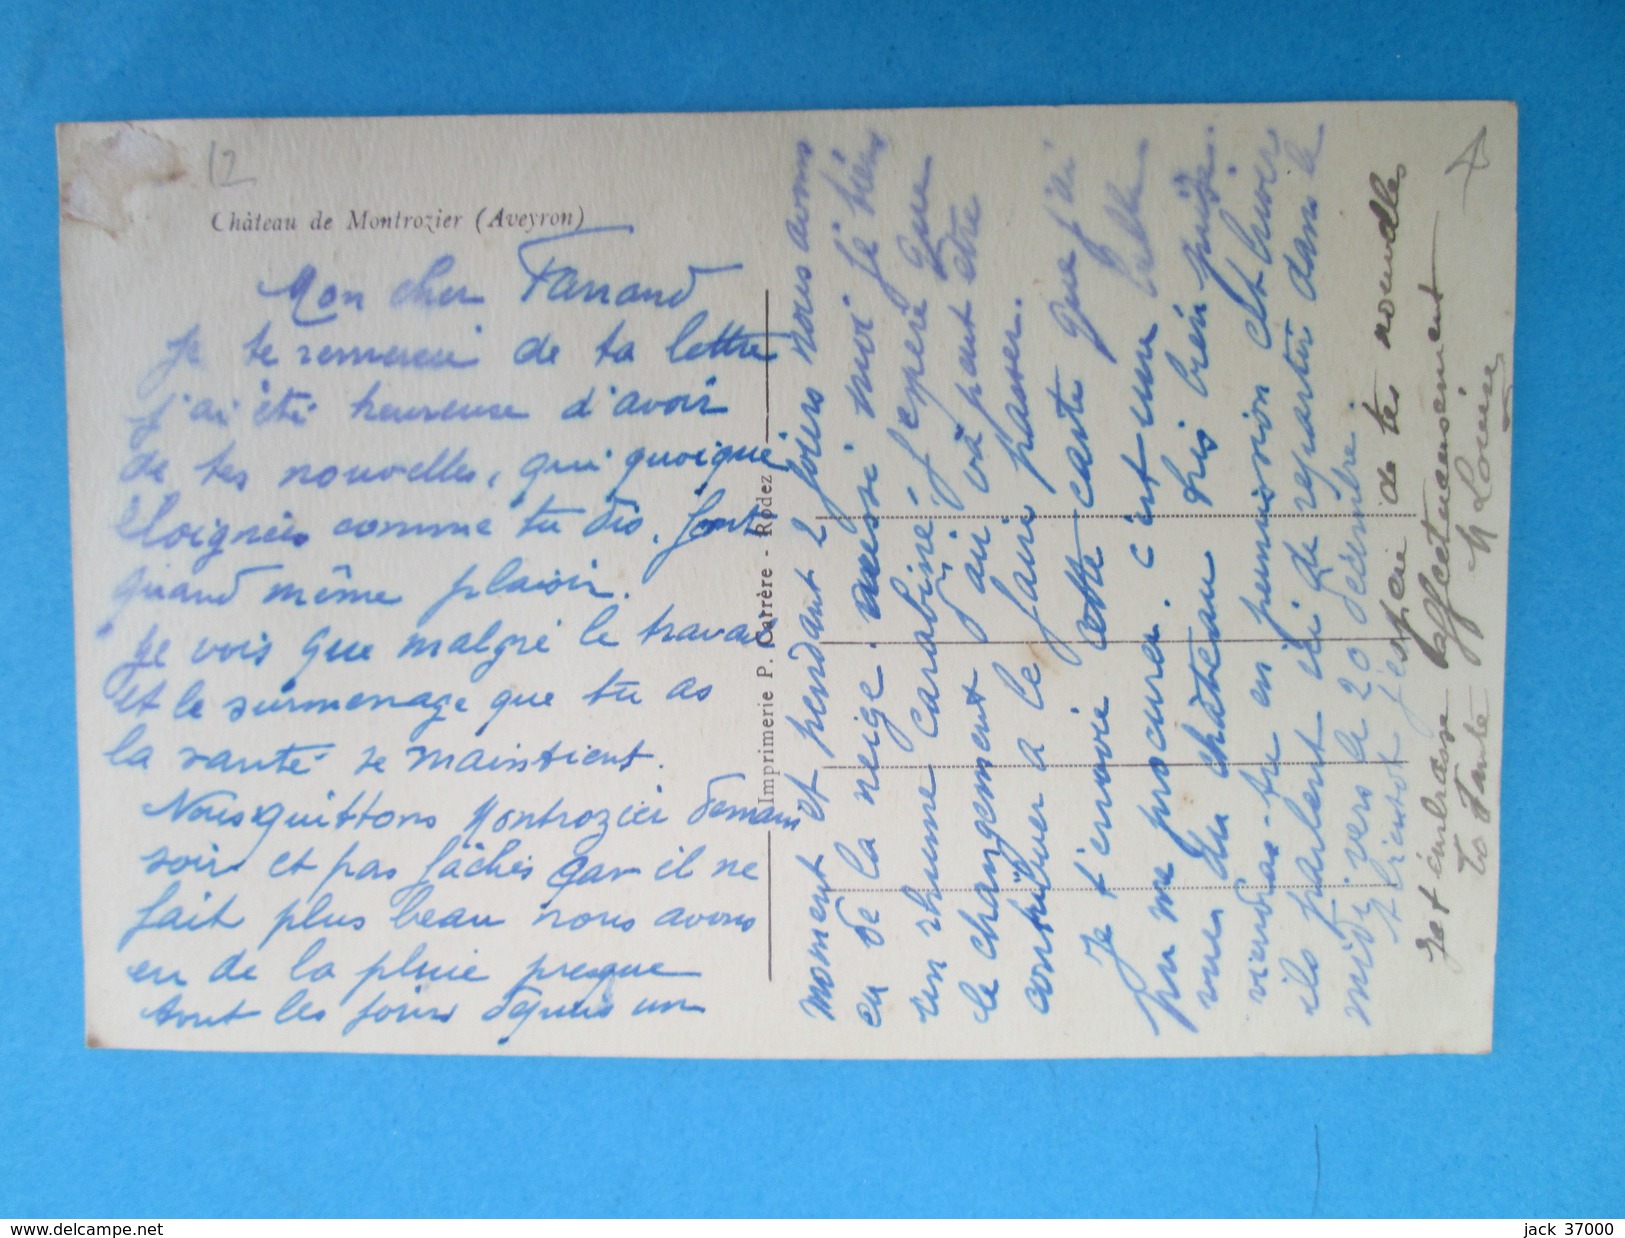 12
Château de Montrozier (Aveyron)
Mon cher Farrand
Je te remercie de ta lettre
j'ai été heureuse d'avoir
de tes nouvelles, qui quoique
éloignées comme tu dis. font
quand même plaisir.
Je vois que malgré le travail
et le surmenage que tu as
la santé se maintient.
Nous quittons Montrozier demain
soir et pas fâchés car il ne
fait plus beau nous avons
eu de la pluie presque
tout les jours depuis un
Imprimerie P. Carrère - Rodez
moment et pendant 2 jours nous avons
eu de la neige. aussi moi j'ai bien
un rhume carabiné, j'espère que
le changement d'air va peut être
contribuer a le faire passer.
Je t'envoie cette carte que j'ai
pu me procurer. c'est une belle
vue du château pris bien
viendras-tu en permission cet hiver
ils parlent ici de repartir dans le
midi vers le 20 décembre.
A bientot j'espère de tes nouvelles
Je t'embrasse affectueusement
ta tante M Louise
jack_37000
www.delcampe.net